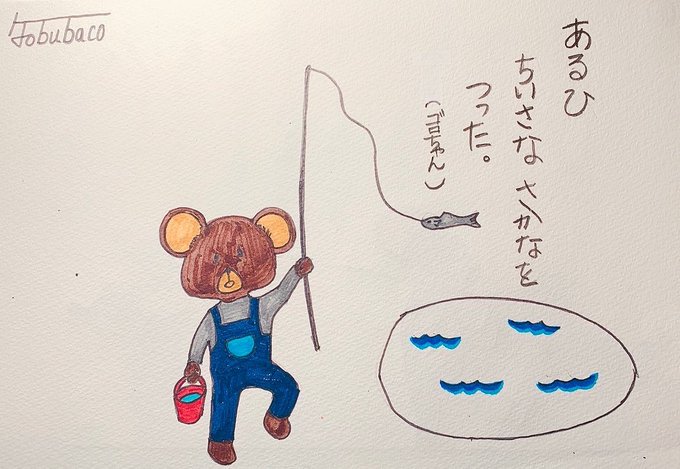 Tobubaco
あるひ
ちいさなさかなを
つった。
(ゴロちゃん)